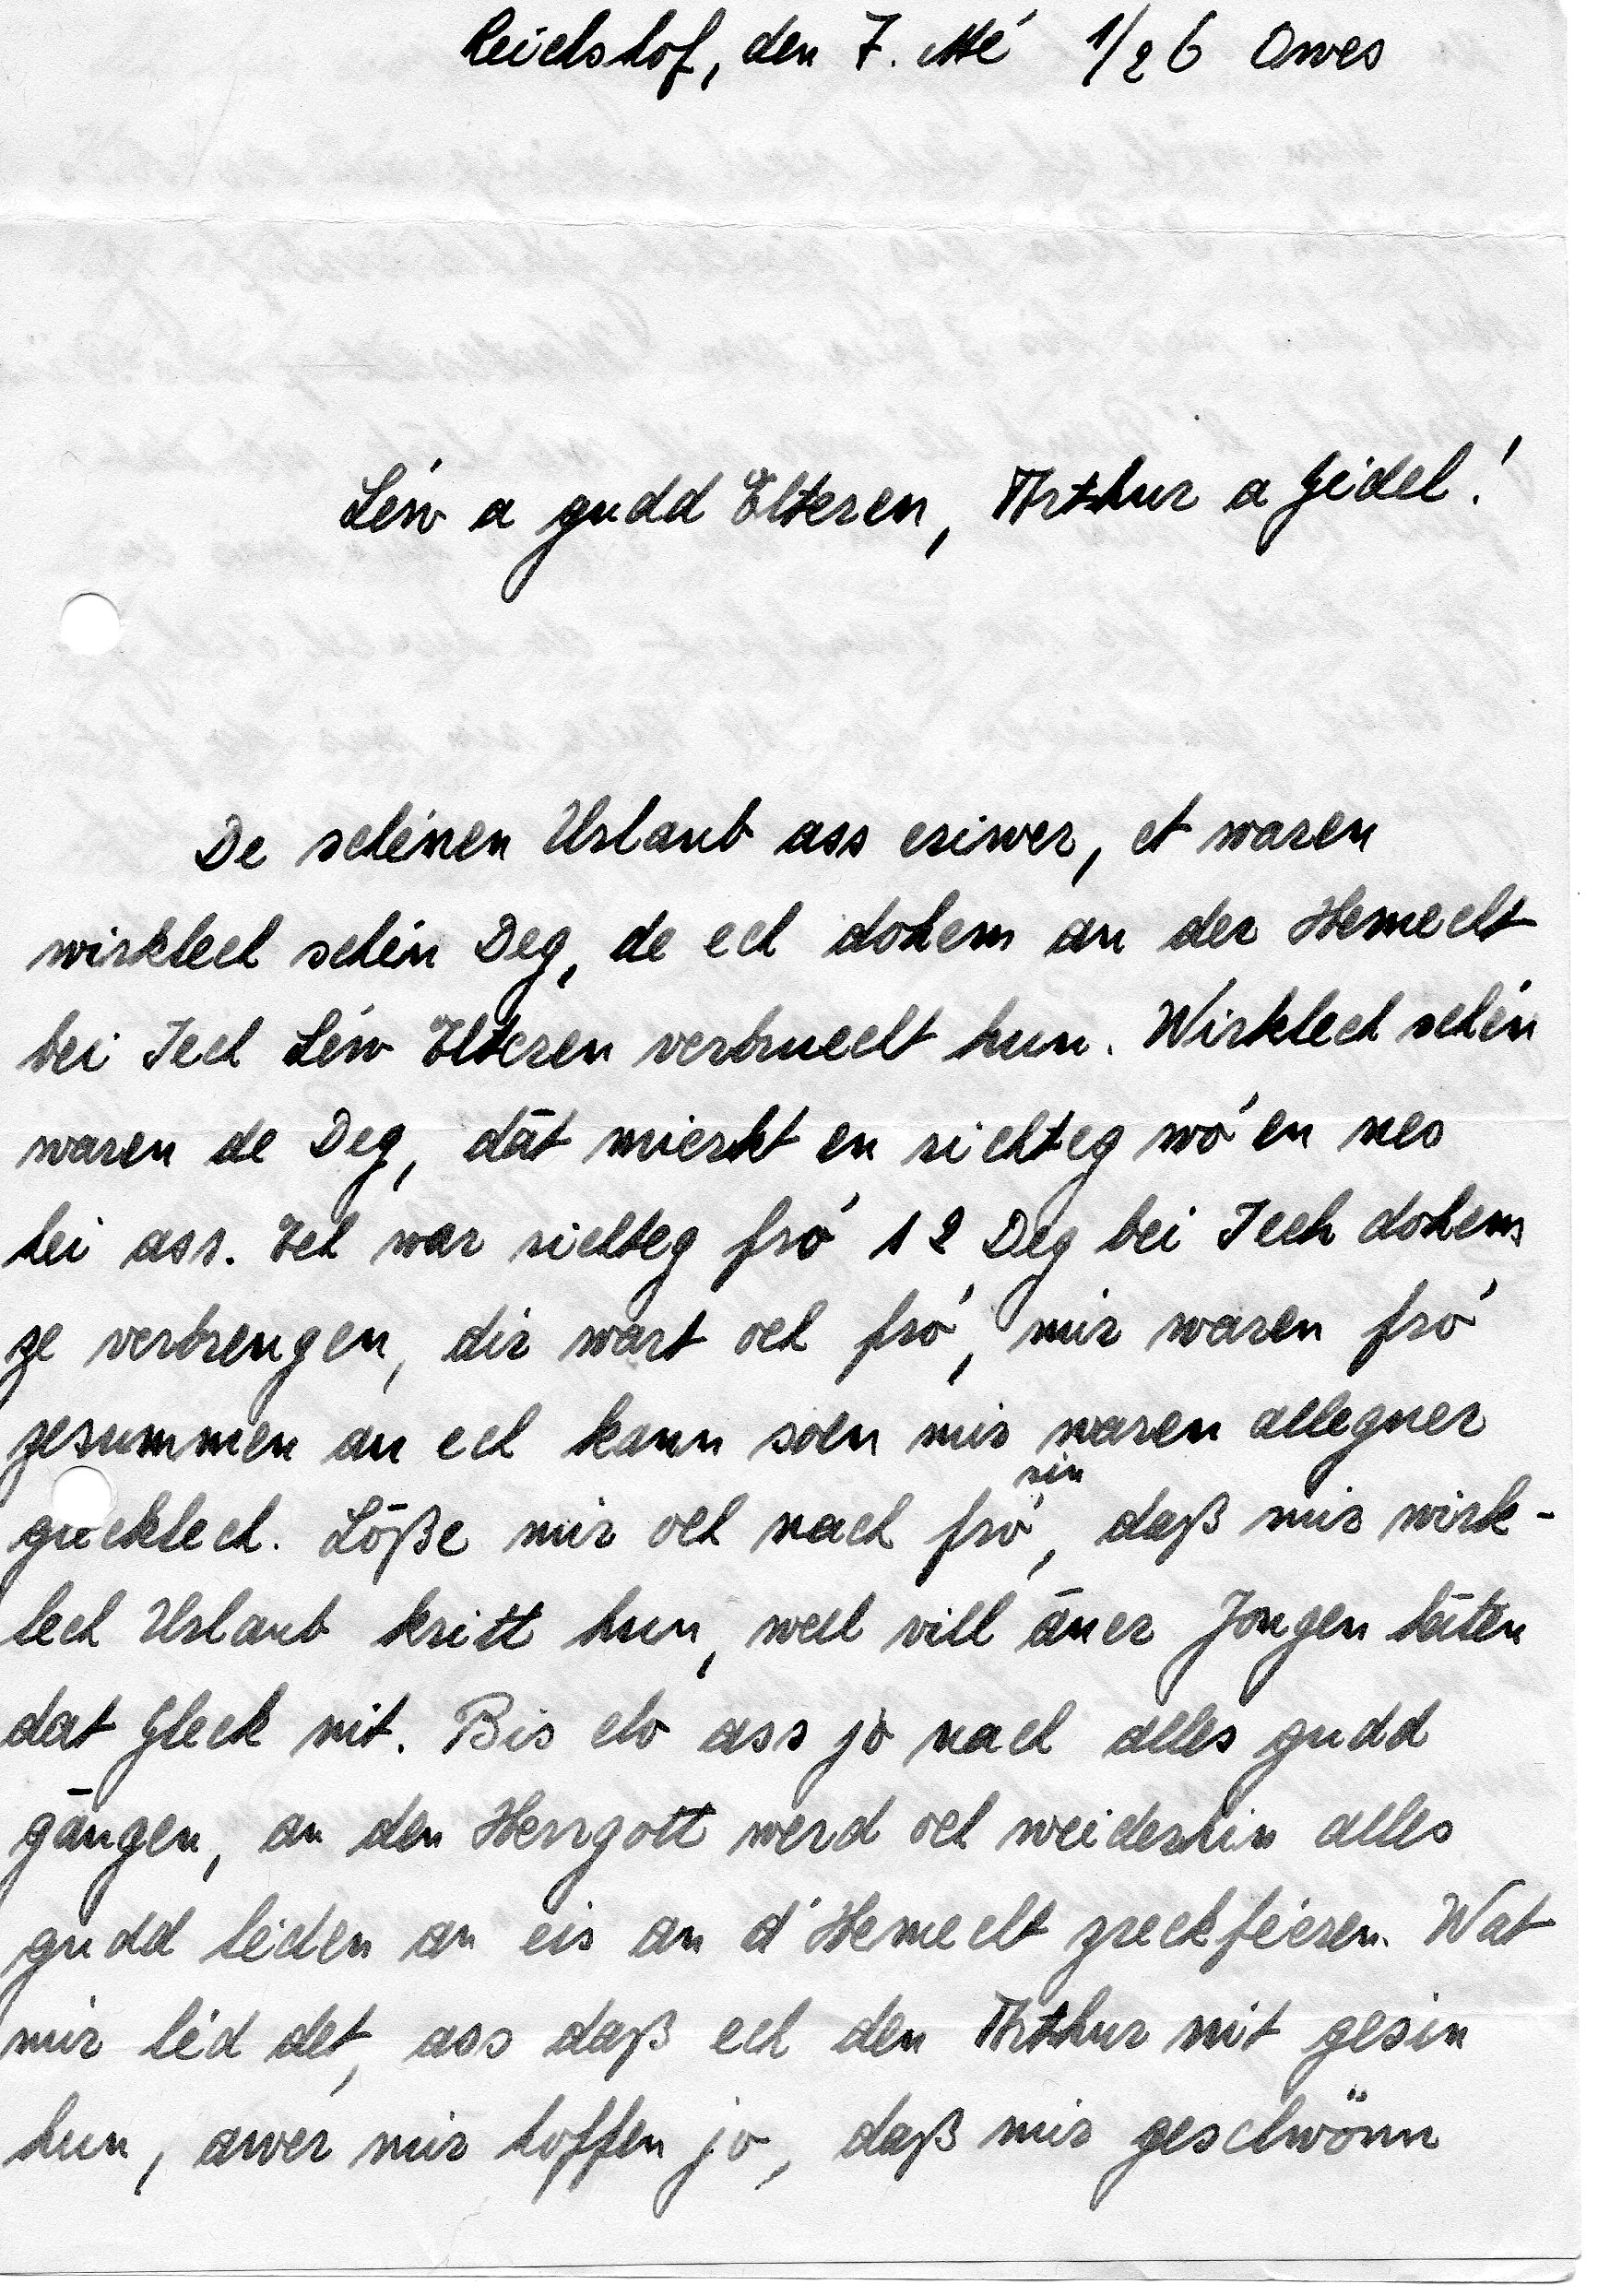 Reichshof, den 7. Mé 1/2 6 Owes
Léiw a gudd Elteren, Arthur a Gidel!
De schéinen Urlaub ass eriwer, et waren
wirklech schéin Deg, de ech dohem an der Hemecht
bei Iech Léiw Elteren verbruecht hun. Wirklech schéin
waren de Deg, dāt mierkt en richteg wó en nes
hei ass. Ech war richteg fró 12 Deg bei Iech dohem
ze verbrengen, dir wart och fró, mir waren fró
zesummen an ech kann soen mir waren alleguer
gleklech. Lōße mir och nach fró sin, daß mir wirk-
lech Urlaub kritt hun, well vill āner Jongen hāten
dat Gleck nit. Bis elo ass jo nach alles gudd
gāngen, an den Herrgott werd och weiderhin alles
gudd léiden an eis an d'Hemecht zreckféieren. Wat
mir léd det, ass daß ech den Arthur nit gesin
hun, awer mir hoffen jo, daß mir geschwönn